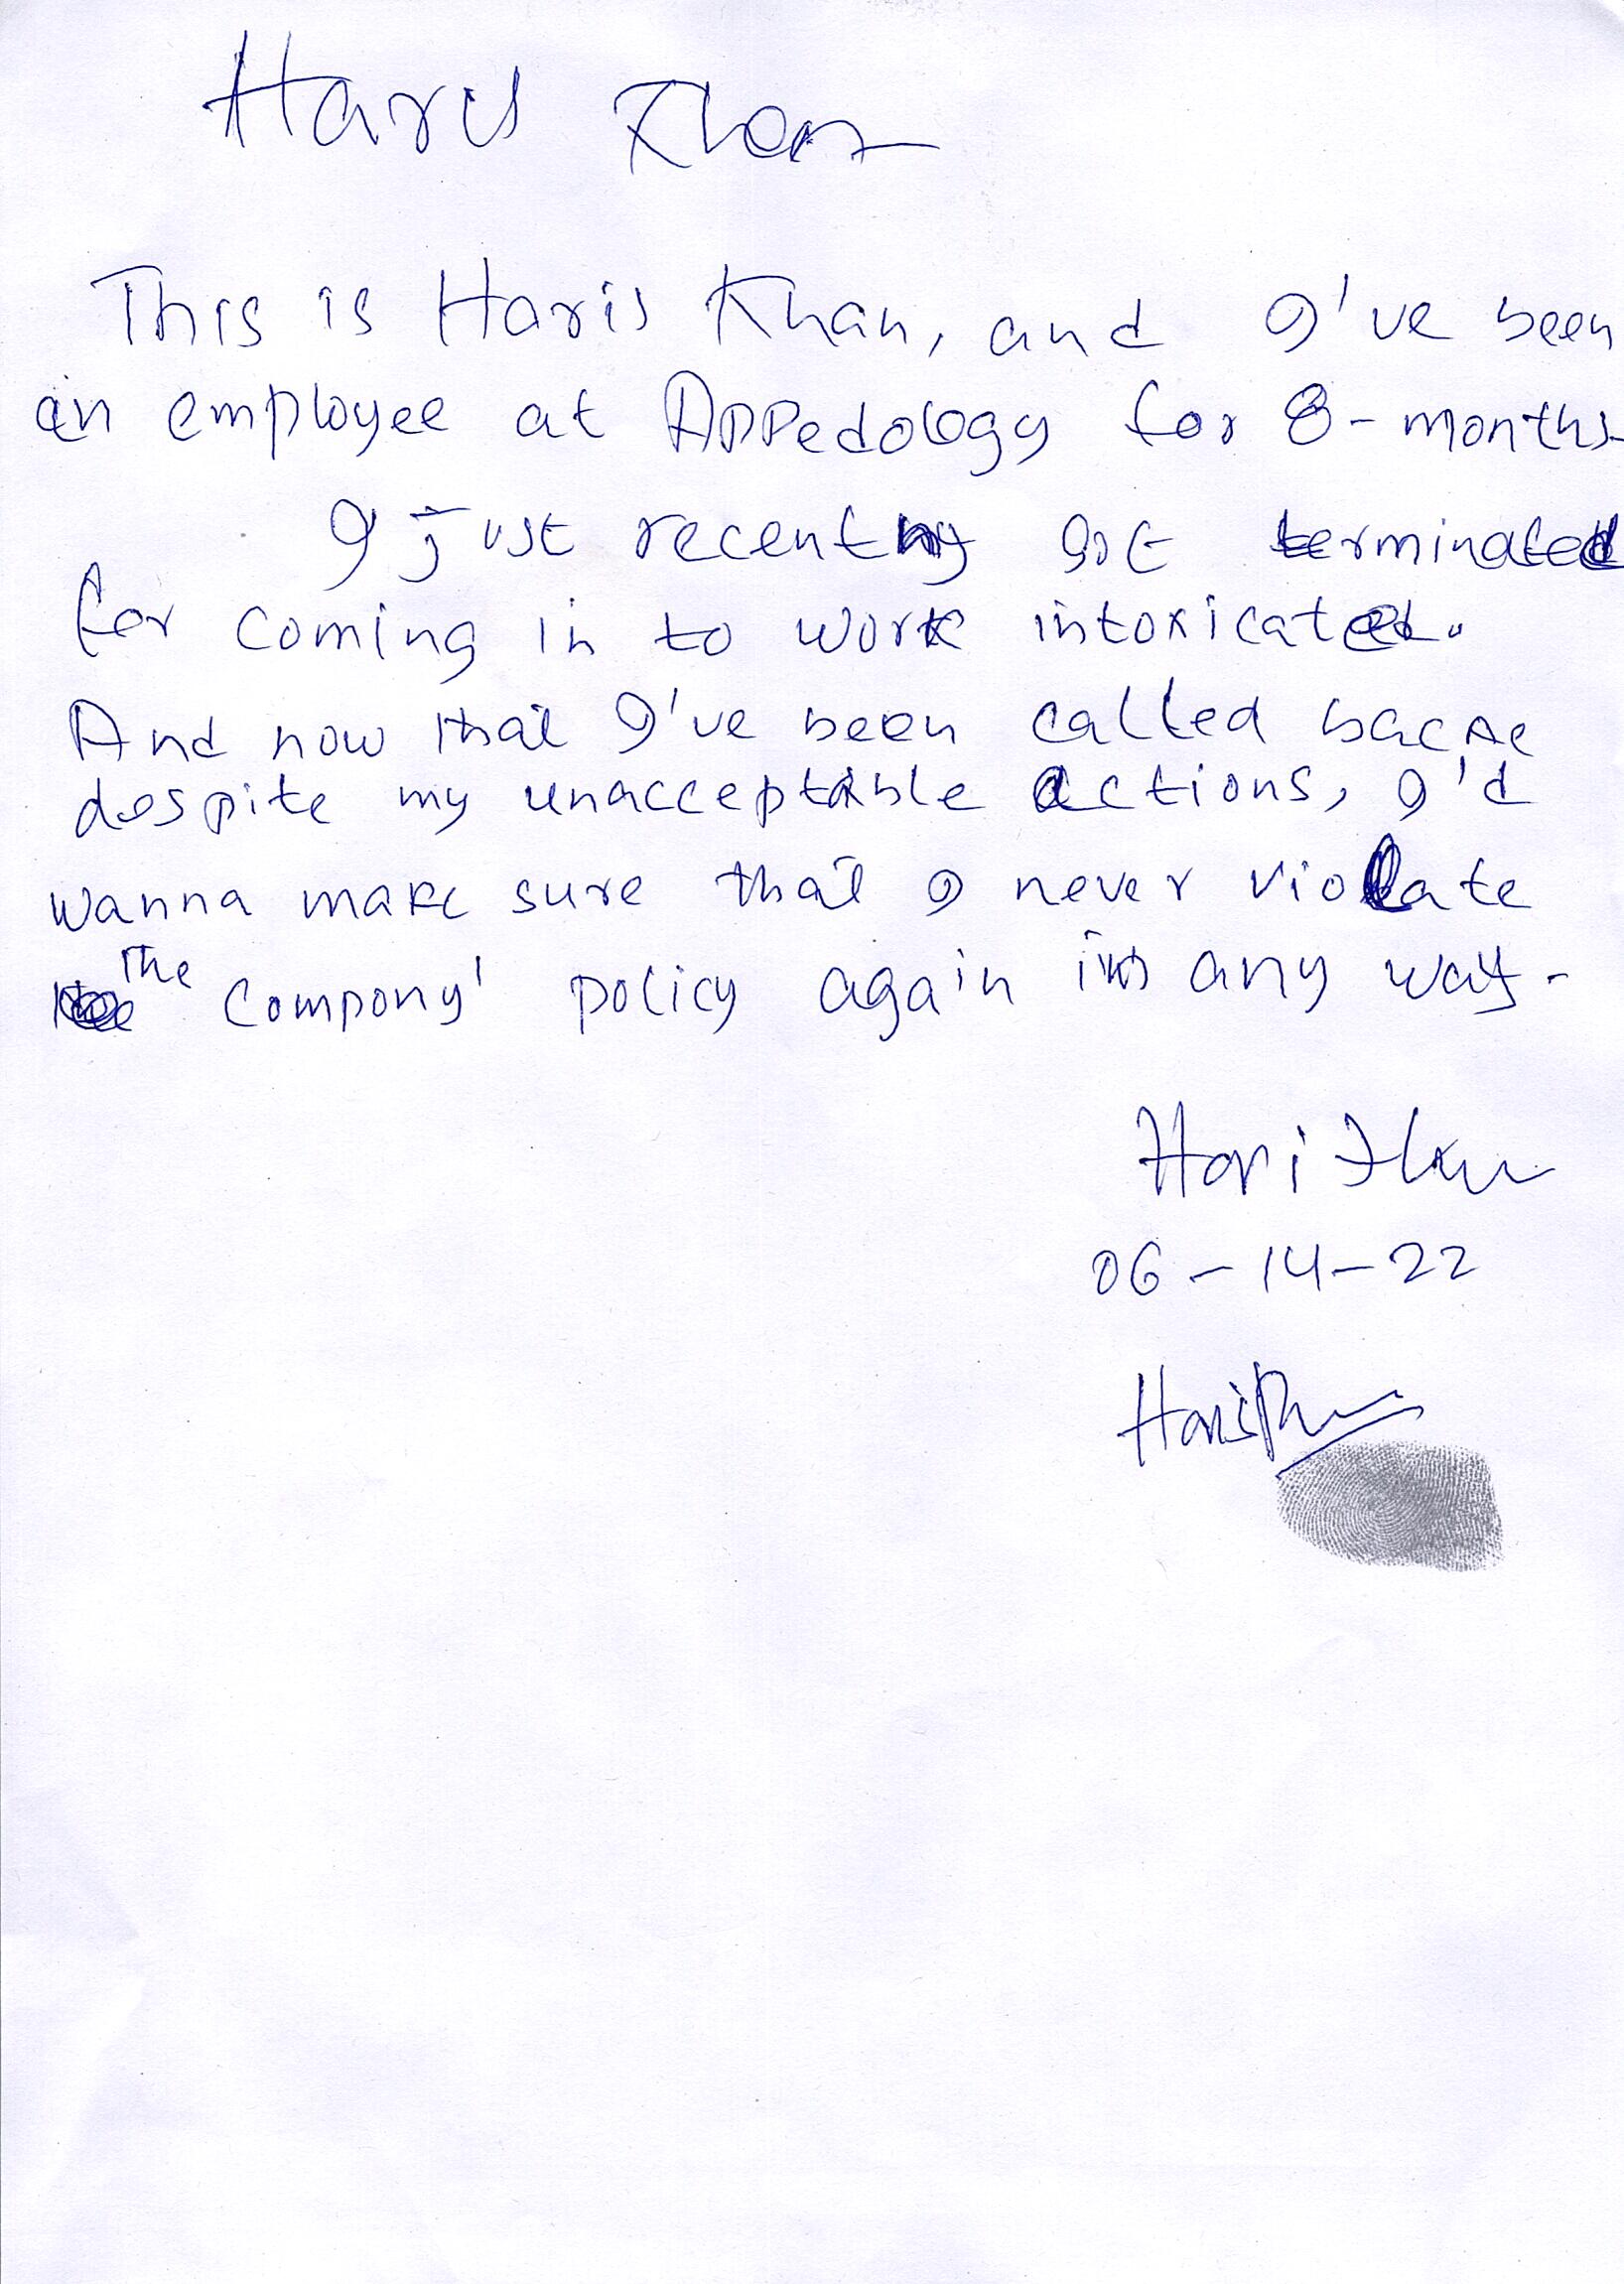 Haris Khan
This is Haris Khan, and I've been
an employee at Appedology for 8-months
I just recently got terminated
for coming in to work intoxicated.
And now that I've been called back
despite my unacceptable actions, I'd
wanna make sure that I never violate
the Compony' policy again in any way-
Hari Khan
06-14-22
Haris